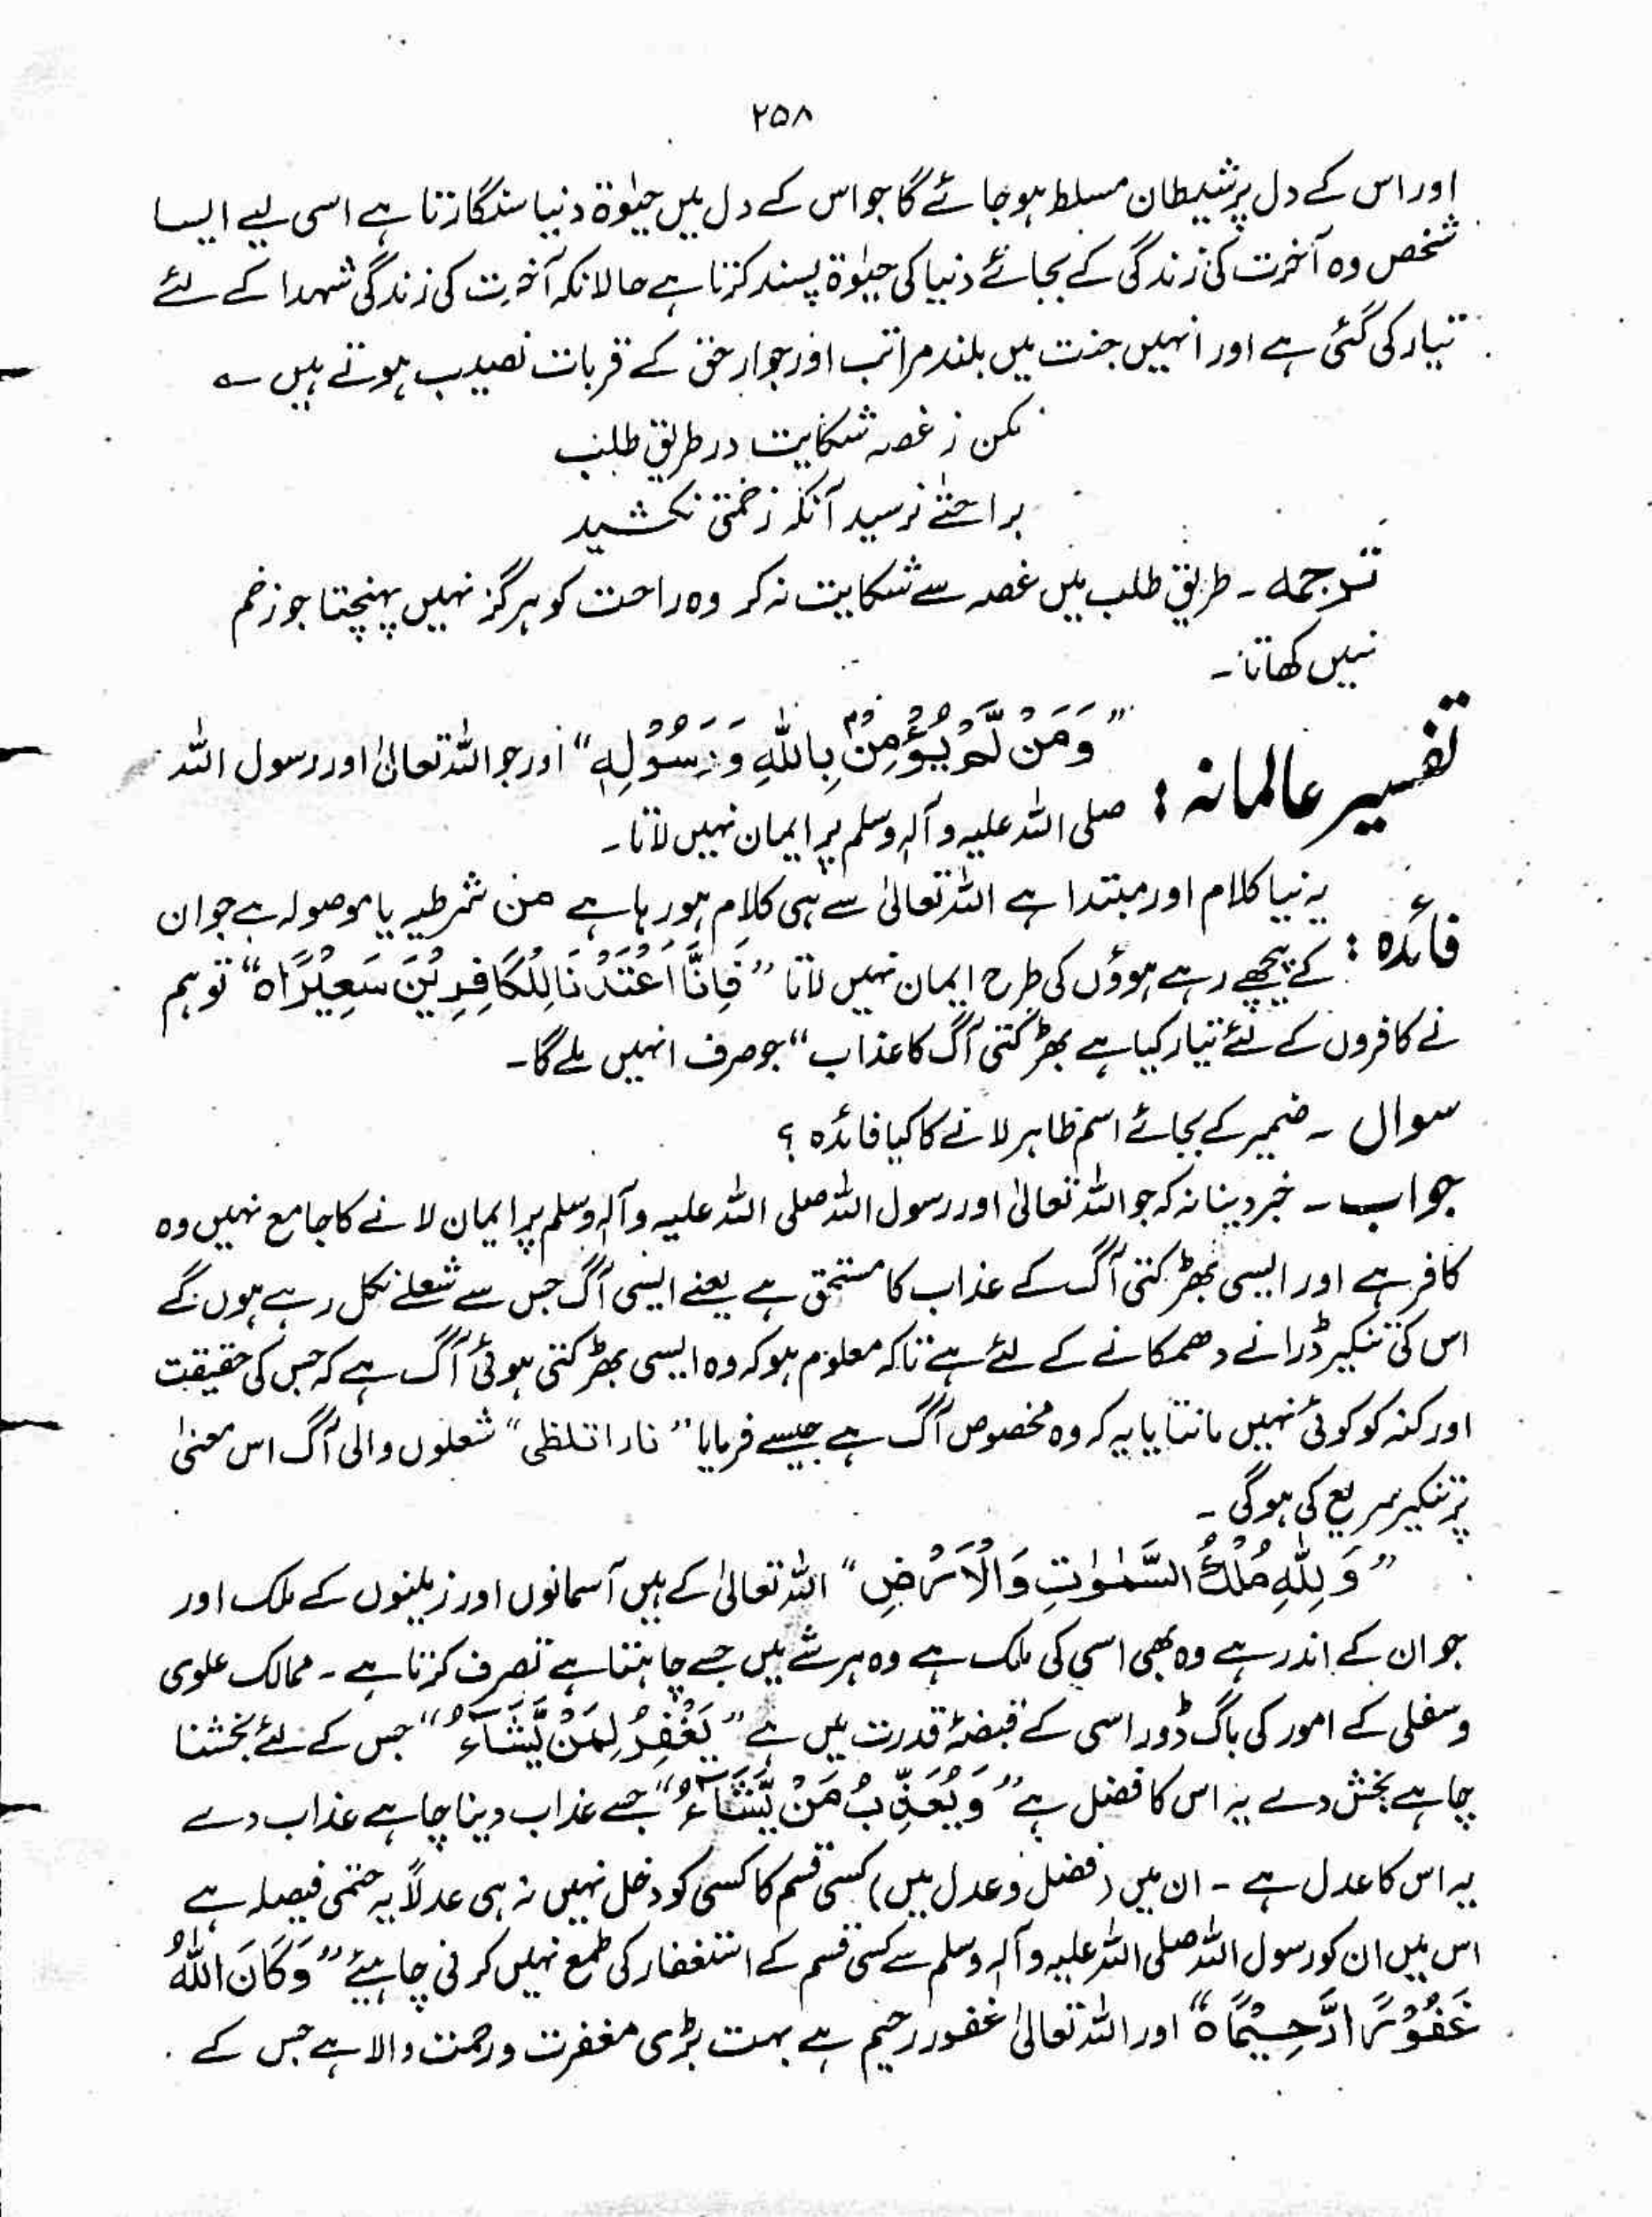 ۲۵۸
اور اس کے دل پر شیطان مسلط ہو جائے گا جو اس کے دل میں حیٰوۃ دنیا سنگارتا ہے اسی لیے ایسا
شخص وہ آخرت کی زندگی کے بجائے دنیا کی حیٰوۃ پسند کرتا ہے حالانکہ آخرت کی زندگی شہدا کے لئے
تیار کی گئی ہے اور انہیں جنت میں بلند مراتب اور جوار حق کے قربات نصیب ہوتے ہیں ؎
مکن ز غصہ شکایت در طریق طلب
براحتے نرسید آنکہ زخمتی نکشید
ترجمہ ۔ طریق طلب میں غصہ سے شکایت نہ کر وہ راحت کو ہرگز نہیں پہنچتا جو زخم
نہیں کھاتا ۔
تفسیر عالمانہ : ”وَمَنْ لَّمْ یُؤْمِنْۢ بِاللّٰہِ وَرَسُوْلِہٖ“ اور جو اللہ تعالیٰ اور رسول اللہ
صلی اللہ علیہ وآلہ وسلم پر ایمان نہیں لاتا ۔
فائدہ : یہ نیا کلام اور مبتدا ہے اللہ تعالیٰ سے ہی کلام ہو رہا ہے من شرطیہ یا موصولہ ہے جو ان
کے پیچھے رہے ہوؤں کی طرح ایمان نہیں لاتا ”فَاِنَّا اَعْتَدْنَا لِلْکَافِرِیْنَ سَعِیْرًا۵“ تو ہم
نے کافروں کے لئے تیار کیا ہے بھڑکتی آگ کا عذاب“ جو صرف انہیں ملے گا ۔
سوال ۔ ضمیر کے بجائے اسم ظاہر لانے کا کیا فائدہ ؟
جواب ۔ خبر دینا نہ کہ جو اللہ تعالیٰ اور رسول اللہ صلی اللہ علیہ وآلہ وسلم پر ایمان لانے کا جامع نہیں وہ
کافر ہے اور ایسی بھڑکتی آگ کے عذاب کا مستحق ہے یعنے ایسی آگ جس سے شعلے نکل رہے ہوں گے
اس کی تنکیر ڈرانے دھمکانے کے لئے ہے تاکہ معلوم ہو کہ وہ ایسی بھڑکتی ہوئی آگ ہے کہ جس کی حقیقت
اور کنہ کو کوئی نہیں مانتا یا یہ کہ وہ مخصوص آگ ہے جیسے فرمایا ”نارا تلظی“ شعلوں والی آگ اس معنیٰ
پر تنکیر سریع کی ہوگی ۔
”وَلِلّٰہِ مُلْکُ السَّمٰوٰتِ وَالْاَرْضِ“ اللہ تعالیٰ کے ہیں آسمانوں اور زمینوں کے ملک اور
جو ان کے اندر ہے وہ بھی اسی کی ملک ہے وہ ہر شے میں جسے چاہتا ہے تصرف کرتا ہے ۔ ممالک علوی
وسفلی کے امور کی باگ ڈور اسی کے قبضۂ قدرت میں ہے ”یَغْفِرُ لِمَنْ یَّشَآءُ“ جس کے لئے بخشنا
چاہے بخش دے یہ اس کا فضل ہے ”وَیُعَذِّبُ مَنْ یَّشَآءُ“ جسے عذاب دینا چاہے عذاب دے
یہ اس کا عدل ہے ۔ ان میں (فضل وعدل میں) کسی قسم کا کسی کو دخل نہیں نہ ہی عدلاً یہ حتمی فیصلہ ہے
اس میں ان کو رسول اللہ صلی اللہ علیہ وآلہ وسلم سے کسی قسم کے استغفار کی طمع نہیں کرنی چاہیئے ”وَکَانَ اللّٰہُ
غَفُوْرًا رَّحِیْمًا۵“ اور اللہ تعالیٰ غفور رحیم ہے بہت بڑی مغفرت ورحمت والا ہے جس کے